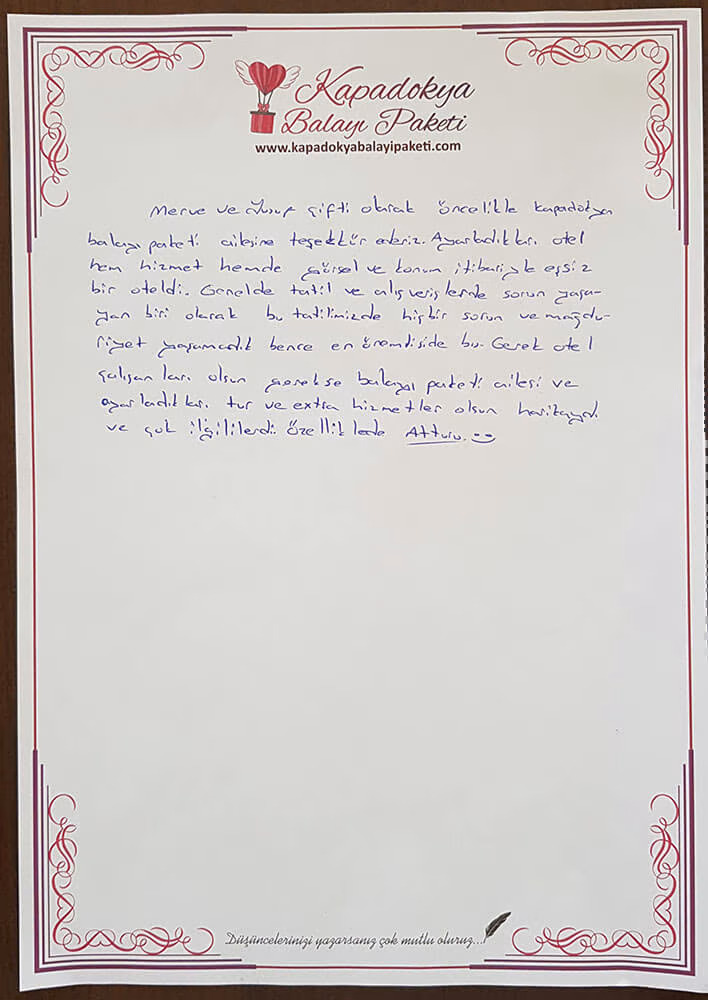 Kapadokya
Balayı Paketi
www.kapadokyabalayipaketi.com
Merve ve Yusuf çifti olarak öncelikle kapadokya
balayı paketi ailesine teşekkür ederiz. Ayarladıkları otel
hem hizmet hemde görsel ve konum itibariyle eşsiz
bir oteldi. Genelde tatil ve alışverişlerde sorun yaşa-
yan biri olarak bu tatilimizde hiçbir sorun ve mağdu-
riyet yaşamadık bence en önemliside bu. Gerek otel
çalışanları olsun gerekse balayı paketi ailesi ve
ayarladıkları tur ve extra hizmetler olsun harikaydı
ve çok ilgililerdi özelliklede
Düşüncelerinizi yazarsanız çok mutlu oluruz...